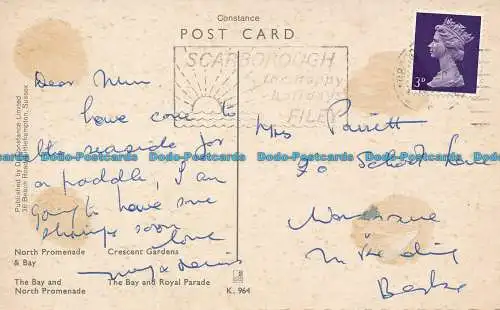 Constance
POST CARD
SCARBOROUGH
for happy
holidays
FILEY
3D
Dear Mum
have come to
the seaside for
a paddle, I am
going to have some
shrimps soon
love
Mrs
School Lane
Berks
Published by D. Constance Limited
Beach Road, Littlehampton, Sussex
North Promenade
& Bay
Crescent Gardens
The Bay and
North Promenade
The Bay and Royal Parade
K. 964
Dodo-Postcards Dodo-Postcards Dodo-Postcards Dodo-Postcards Dodo-Postcards